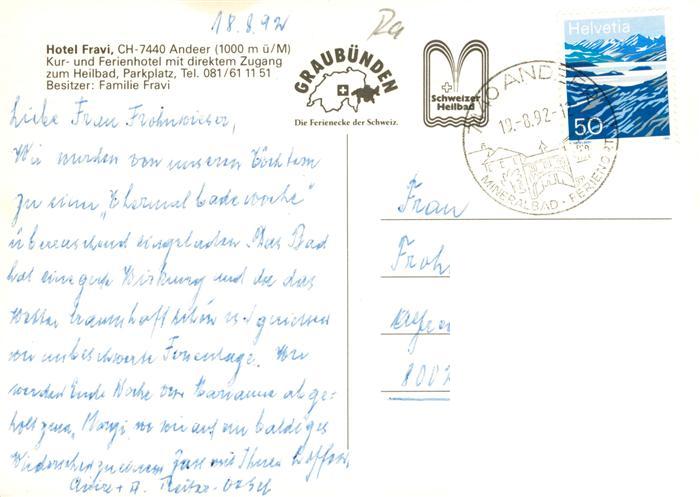 18.8.92
Ra
Hotel Fravi, CH-7440 Andeer (1000 m ü/M)
Kur- und Ferienhotel mit direktem Zugang
zum Heilbad, Parkplatz, Tel. 081/61 11 51
Besitzer: Familie Fravi
GRAUBÜNDEN
Die Ferienecke der Schweiz.
Schweizer
Heilbad
Helvetia
50
7440 ANDEER
19.-8.92-1
MINERALBAD · FERIENORT
Liebe Frau Frohnwieser,
Wir wurden von unseren Töchtern
zu einer „Thermalbadewoche"
überraschend eingeladen. Das Bad
hat eine gute Wirkung und da das
Wetter traumhaft schön ist genießen
wir unbeschwerte Ferientage. Wir
werden Ende Woche von Marianne abge-
holt wo wir auf ein baldiges
Wiedersehen mit Ihnen hoffen.
Frau
Froh
8002